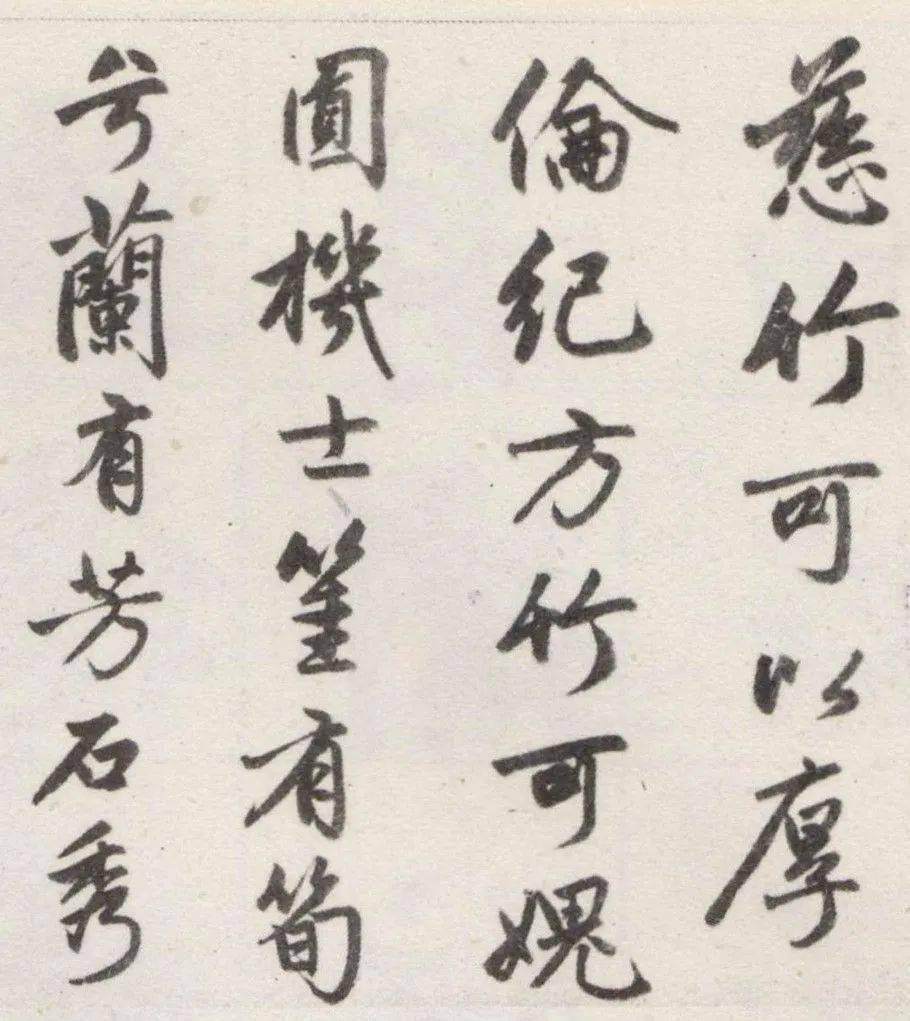 慈竹可以厚
倫紀方竹可媿
圓機士篁有筍
兮蘭有芳石秀